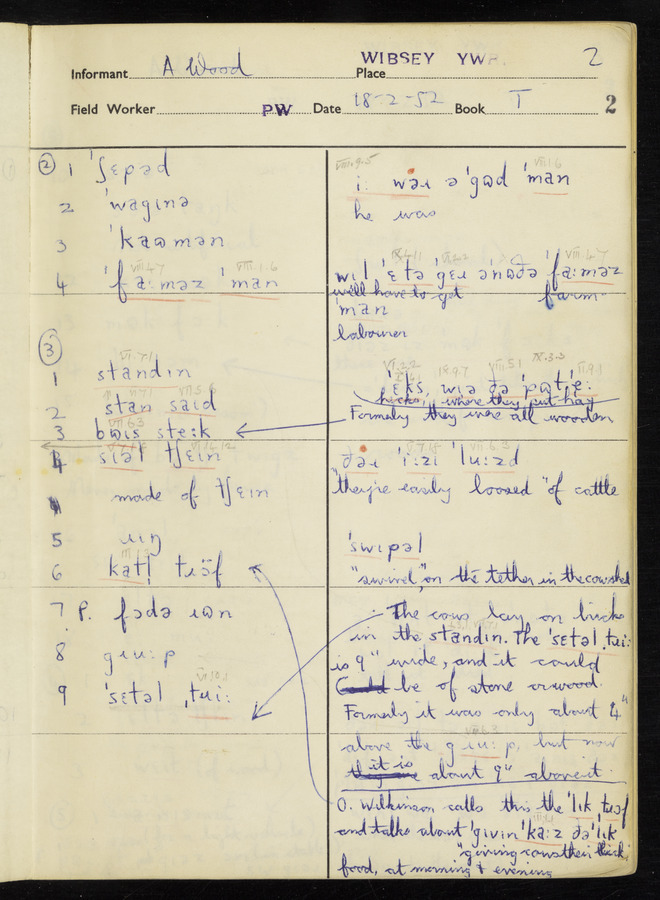 WIBSEY YWR. 2
Informant A Wood Place
Field Worker PW Date 18-2-52 Book T 2
② 1 ˈʃɛpəd
2 ˈwagɪnə
3 ˈkaʊmən
4 ˈfa:məz ˈman
③
1 standɪn
2 stan said
3 bʊɪs stɛ:k
4 sɪəl tʃɛɪn
made of tʃɛɪn
5 ɹɪŋ
6 katl̩ tɹɔ̈f
7 P. fɒdə ɹʊn
8 gɹu:p
9 ˈsɛtəl ˌtɹi:
VIII.9.5 VIII.1.6
i: wəɹ ə ˈgʊd ˈman
he was
wɪl ˈɛ tə ˈgɛɹ ənʊðə ˈfa:məz
we'll have to get farm
ˈman
labourer
ˈɛks, wɪə ðə ˈpʊt ˈe:
hecks, where they put hay
Formerly they were all wooden
ðəɹ ˈi:zɪ ˈlu:zd
"they're easily loosed" of cattle
ˈswɪpəl
"swivel", on the tether in the cowshed
The cows lay on bricks
in the standɪn. The ˈsɛtəl ˌtɹi:
is 9" wide, and it could
be of stone or wood.
Formerly it was only about 4"
above the gɹu:p, but now
it is about 9" above it.
O. Wilkinson calls this the ˈlɪk tɹɔf
and talks about ˈgɪvɪn ˈka:z ðə ˈlɪk
"giving cows their lick"
food, at morning & evening